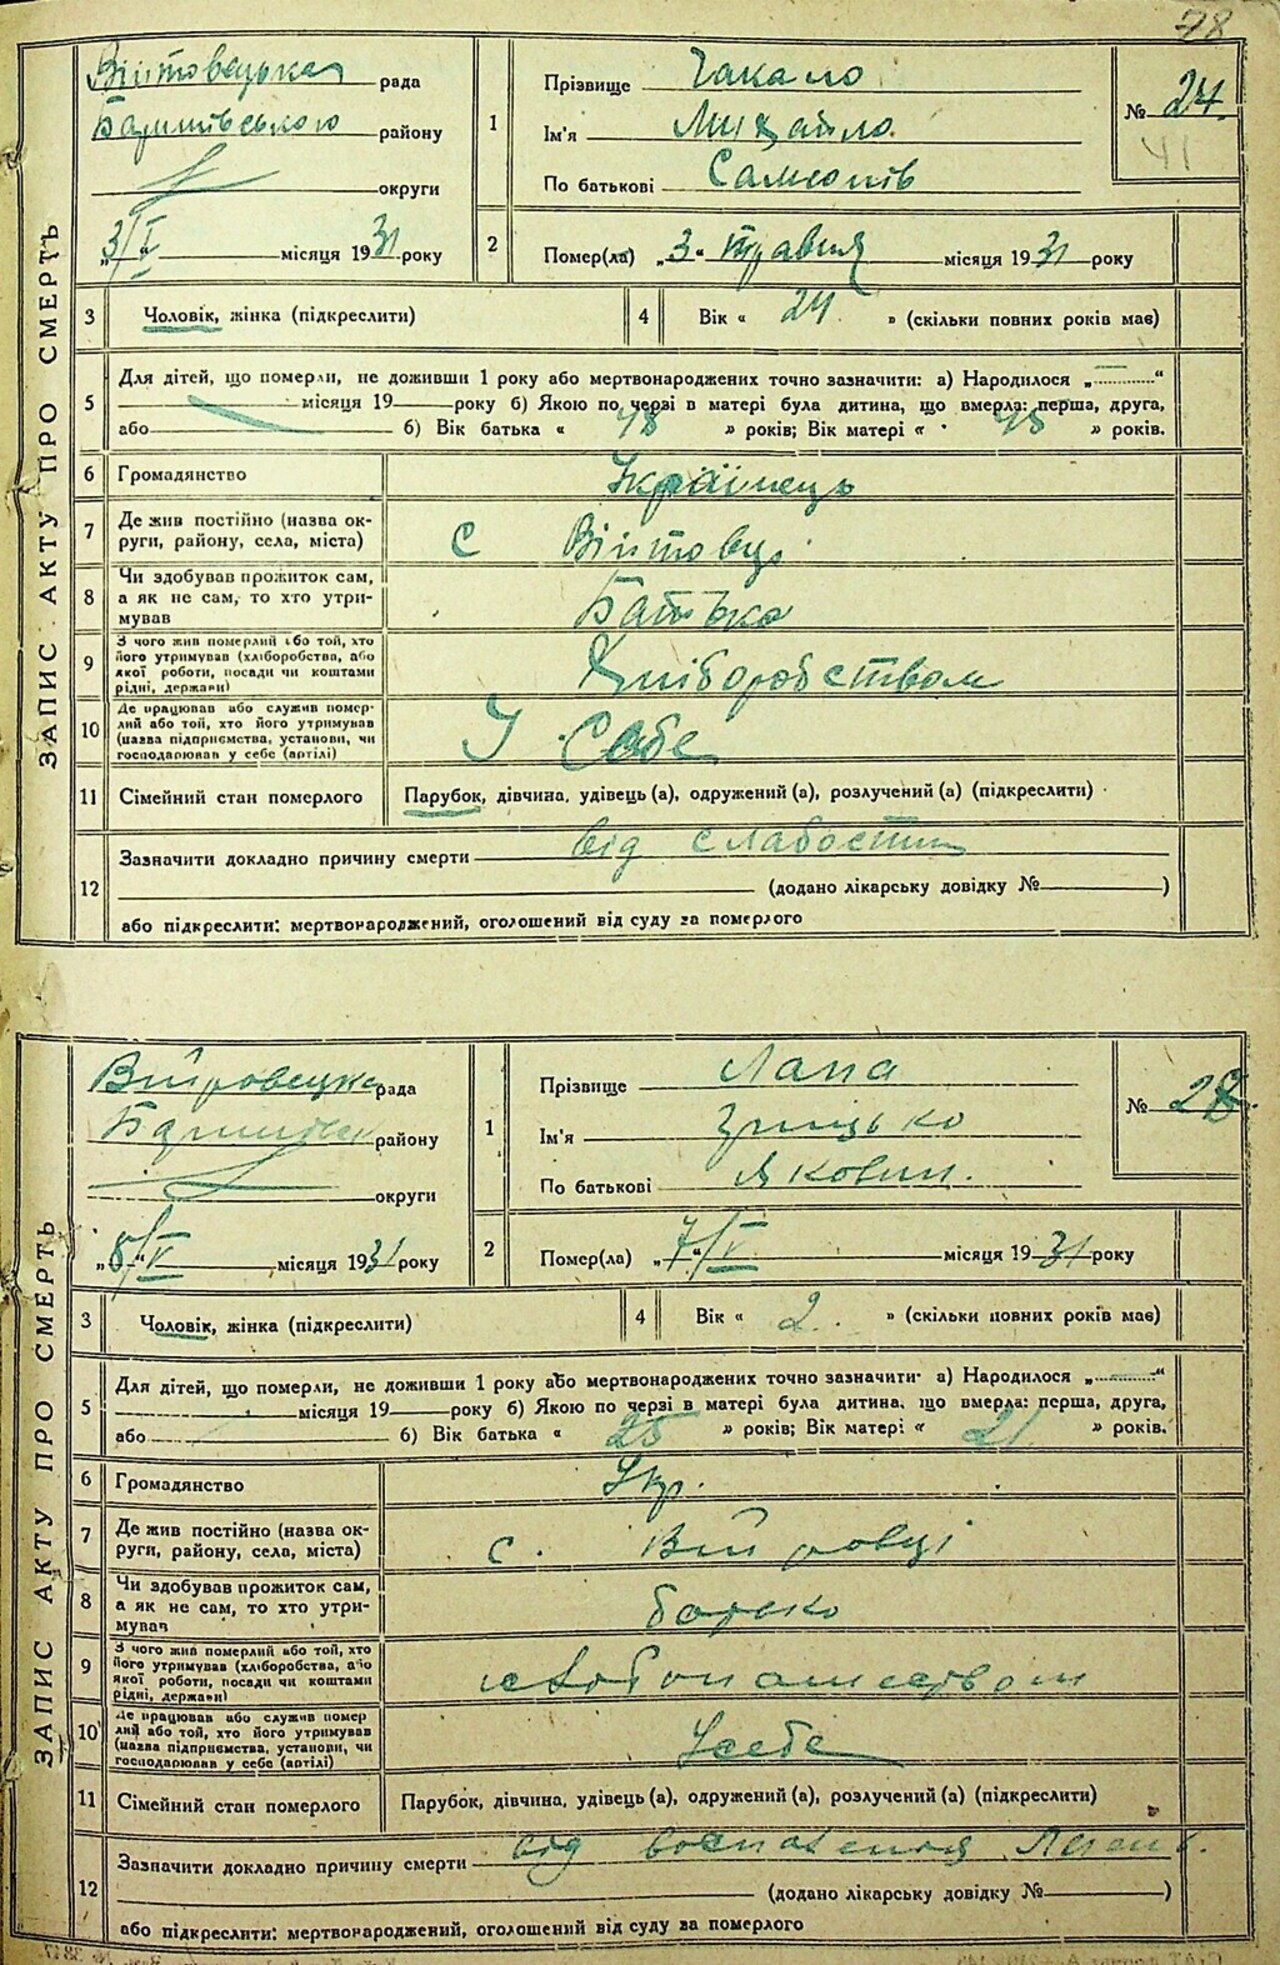 78
ЗАПИС АКТУ ПРО СМЕРТЬ
Війтовецька рада
Баришівського району
округи
„3/V“ місяця 1931 року
1
Прізвище Чакало
Ім'я Михайло
По батькові Самсонів
№ 24
41
2 Помер(ла) „3“ травня місяця 1931 року
3 Чоловік, жінка (підкреслити)
4 Вік « 24 » (скільки повних років має)
5 Для дітей, що померли, не доживши 1 року або мертвонароджених точно зазначити: а) Народилося „ “
місяця 19 року б) Якою по черзі в матері була дитина, що вмерла: перша, друга,
або б) Вік батька « 48 » років; Вік матері « 45 » років.
6 Громадянство Українець
7 Де жив постійно (назва округи, району, села, міста) С Війтовці
8 Чи здобував прожиток сам,
а як не сам, то хто утри-
мував Батько
9 З чого жив померлий або той, хто
його утримував (хліборобства, або
якої роботи, посади чи коштами
рідні, держави) Хліборобством
10 Де працював або служив помер-
лий або той, хто його утримував
(назва підприємства, установи, чи
господарював у себе (артілі) У Себе
11 Сімейний стан померлого Парубок, дівчина, удівець (а), одружений (а), розлучений (а) (підкреслити)
12 Зазначити докладно причину смерти від слабости
(додано лікарську довідку № )
або підкреслити: мертвонароджений, оголошений від суду за померлого
ЗАПИС АКТУ ПРО СМЕРТЬ
рада
району
округи
„8/V“ місяця 1931 року
1
Прізвище Лапа
Ім'я Грицько
По батькові Якович.
№ 28
2 Помер(ла) „7/V“ місяця 1931 року
3 Чоловік, жінка (підкреслити)
4 Вік « 2 » (скільки повних років має)
5 Для дітей, що померли, не доживши 1 року або мертвонароджених точно зазначити: а) Народилося „ “
місяця 19 року б) Якою по черзі в матері була дитина, що вмерла: перша, друга,
або б) Вік батька « 25 » років; Вік матері « 21 » років.
6 Громадянство Укр.
7 Де жив постійно (назва ок-
руги, району, села, міста) с.
8 Чи здобував прожиток сам,
а як не сам, то хто утри-
мував батько
9 З чого жив померлий або той, хто
його утримував (хліборобства, або
якої роботи, посади чи коштами
рідні, держави)
10 Де працював або служив помер
лий або той, хто його утримував
(назва підприємства, установи, чи
господарював у себе (артілі) У себе
11 Сімейний стан померлого Парубок, дівчина, удівець (а), одружений (а), розлучений (а) (підкреслити)
12 Зазначити докладно причину смерти від воспаления
(додано лікарську довідку № )
або підкреслити: мертвонароджений, оголошений від суду за померлого